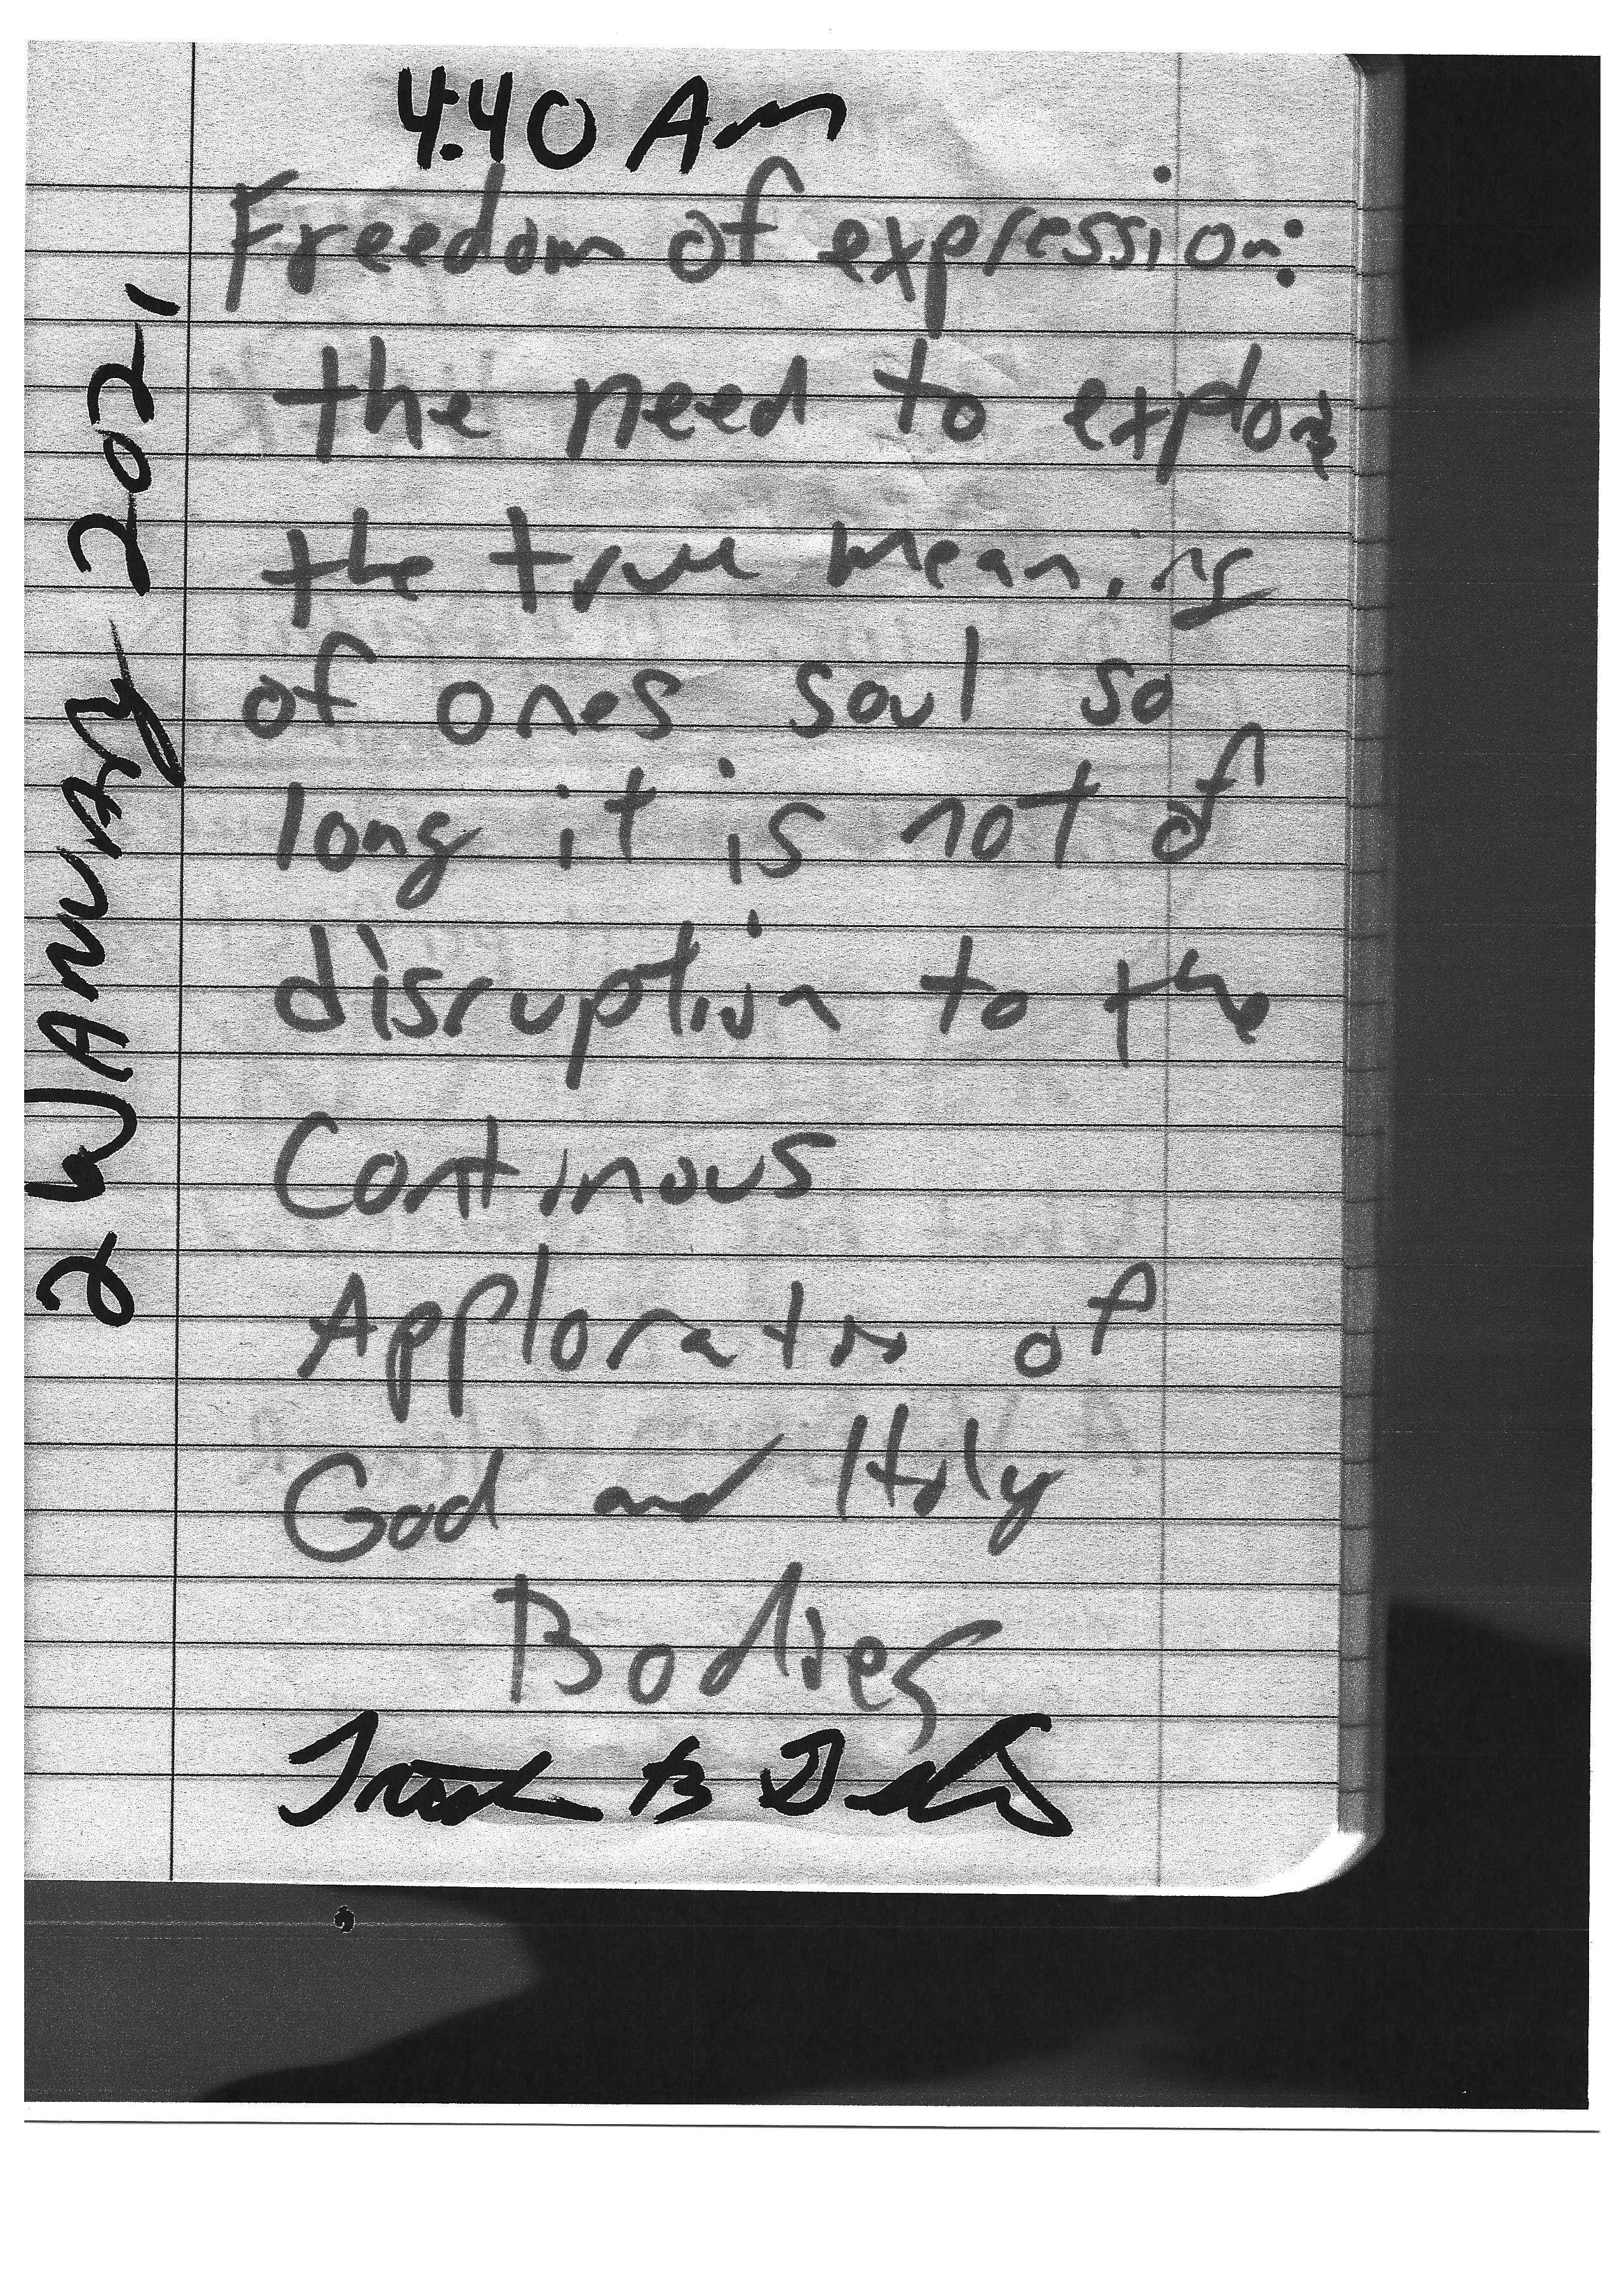 4:40 Am
Freedom of expression:
the need to explore
the true meaning
of ones soul so
long it is not of
disruption to the
Continous
Apploration of
God and Holy
Bodies
2 JANUARY 2021